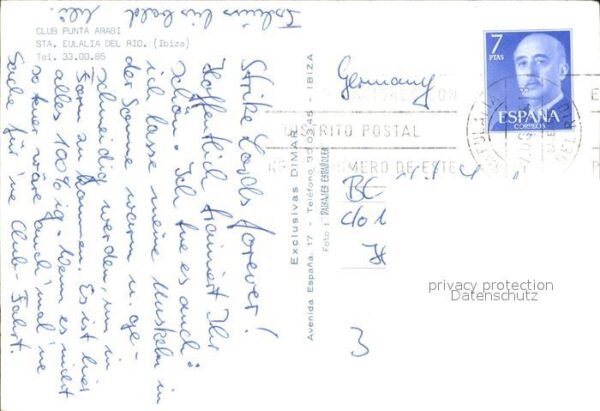 CLUB PUNTA ARABI
STA. EULALIA DEL RIO. (Ibiza)
Tel. 33.00.85
Tschüss bis bald
Strike Lords forever!
Hoffentlich trainiert Ihr
schön. Ich tue es auch:
ich lasse meine Muskeln in
der Sonne warm u. ge-
schmeidig werden, um in
Form zu kommen. Es ist hier
alles 100%ig. Wenn es nicht
so teuer wäre auch 'mal 'ne
Sache für 'ne Club-Fahrt.
Exclusivas DIMAR
Avenida España, 17 - Teléfono 30 03 45 - IBIZA
Foto: PAISAJES ESPAÑOLES
Germany
DISTRITO POSTAL
NUMERO DE ESTE
7
PTAS
ESPAÑA
CORREOS
c/o
3
privacy protection
Datenschutz